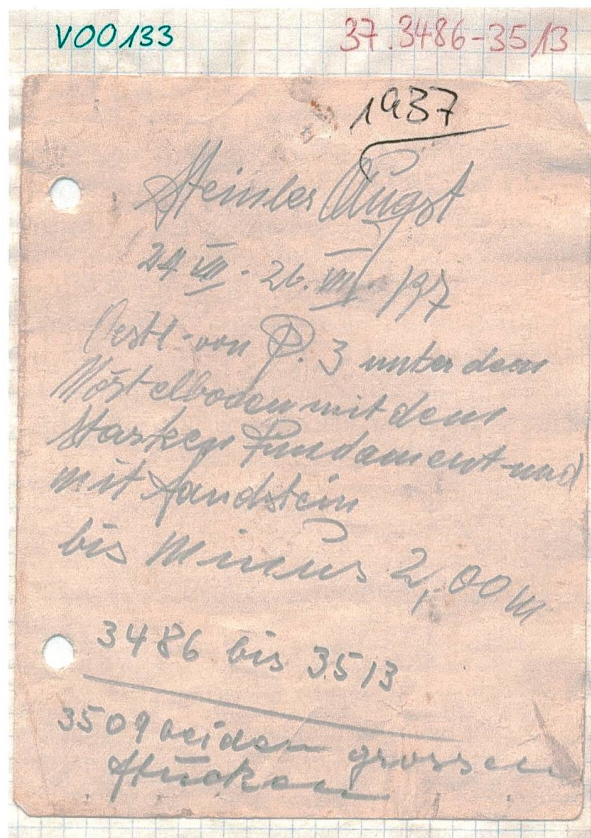 V00133
37.3486-3513
1937
Steinler Augst
24 VIII. 26. VIII. 1937
Oestl. von P. 3 unter dem
Mörtelboden mit dem
Starken Fundament und
mit Sandstein
bis Minus 2,00 m
3486 bis 3513
3509 beiden grossen
Stücken